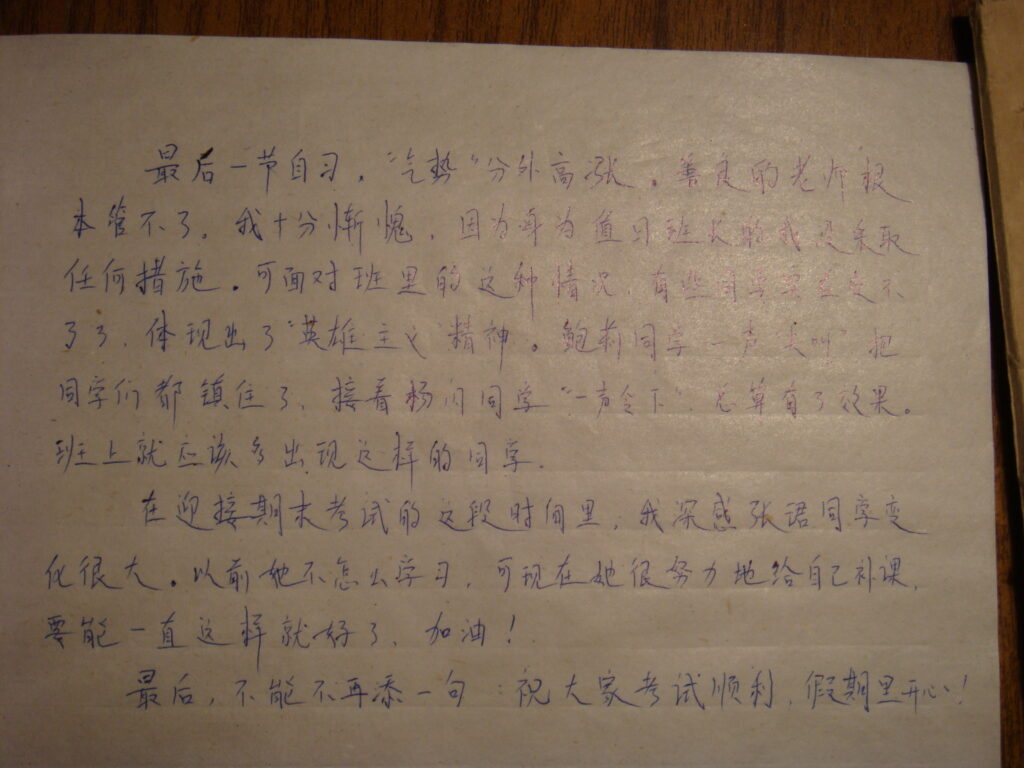 最后一节自习，“气势”分外高涨，善良的老师根
本管不了。我十分惭愧，因为身为值日班长的我没采取
任何措施。可面对班里的这种情况，有些同学实在受不
了了，体现出了“英雄主义”精神。鲍莉同学一声“尖叫”把
同学们都镇住了，接着杨闪同学“一声令下”，总算有了效果。
班上就应该多出现这样的同学。
在迎接期末考试的这段时间里，我深感张珺同学变
化很大。以前她不怎么学习，可现在她很努力地给自己补课，
要能一直这样就好了，加油！
最后，不能不再添一句：祝大家考试顺利，假期里开心！